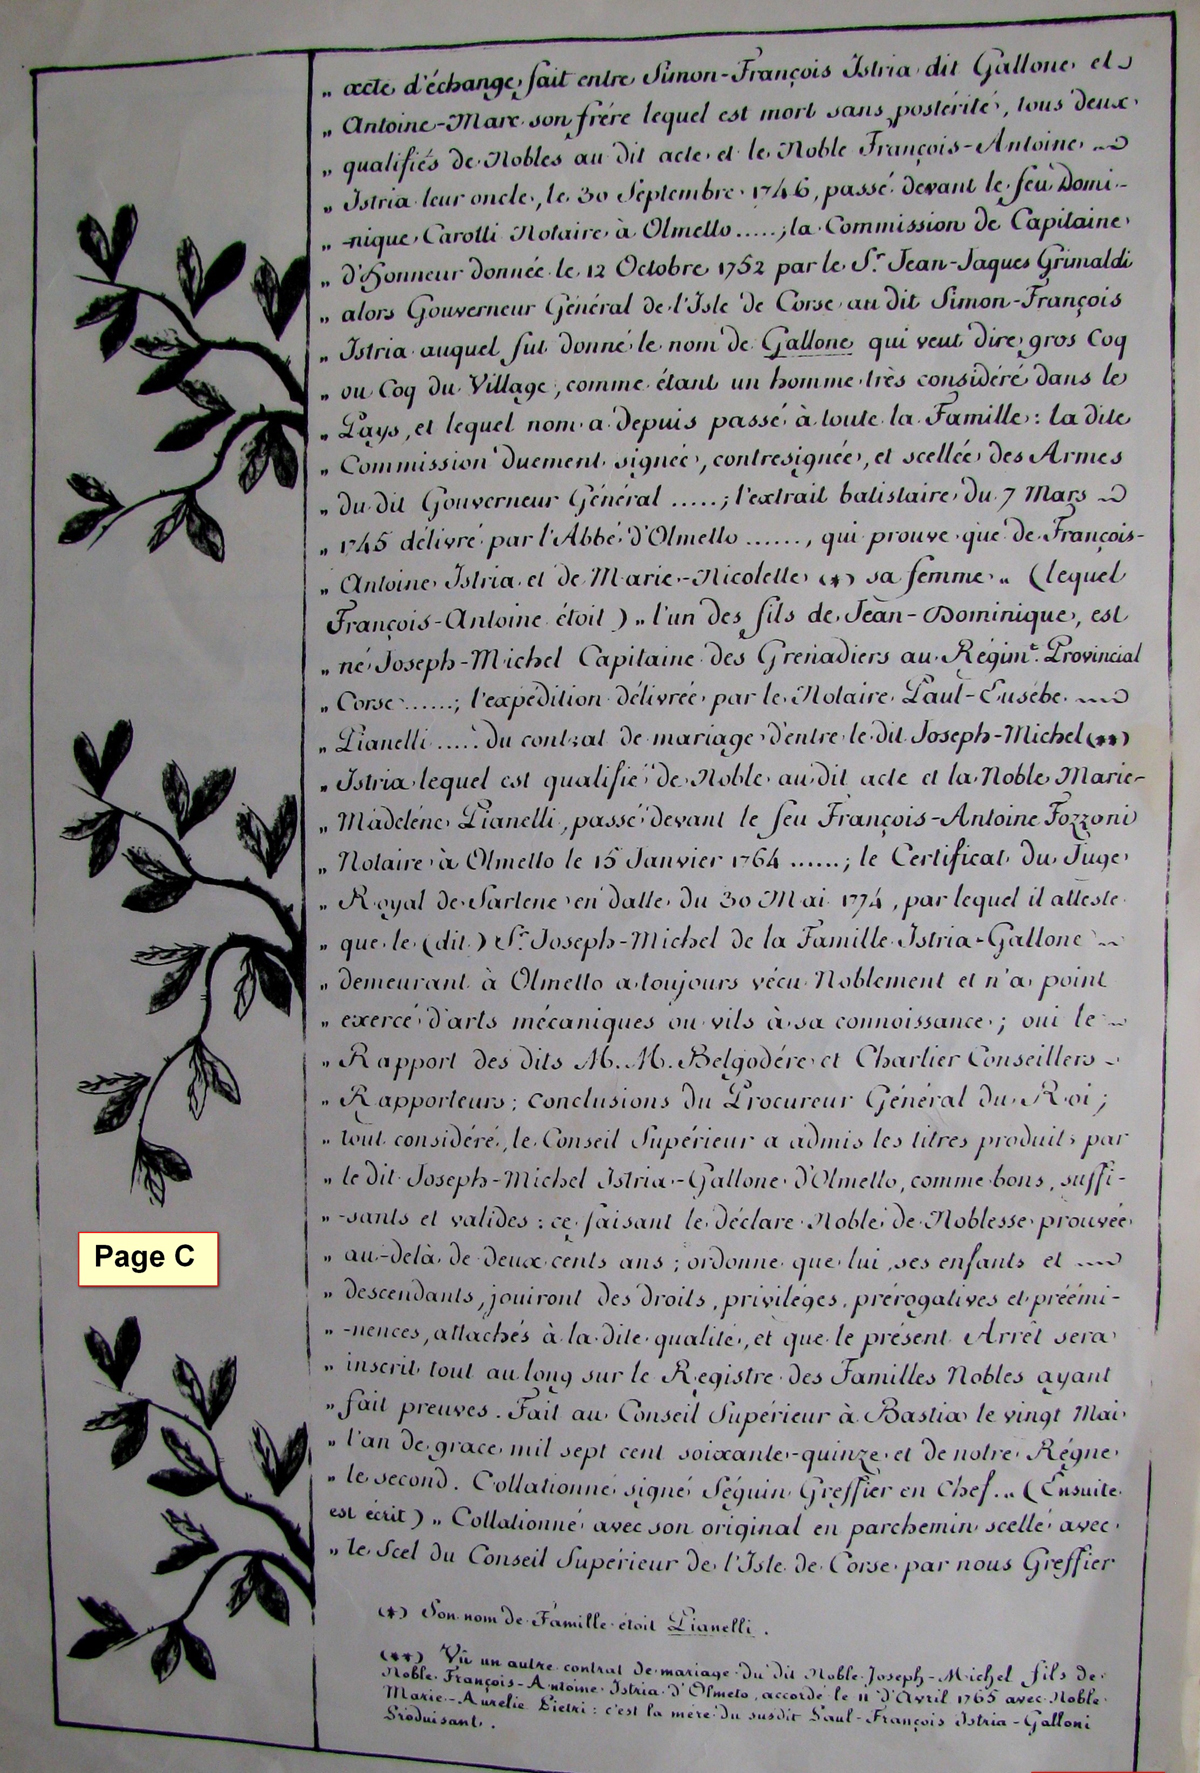 „ acte d'échange, fait entre Simon-François Istria dit Gallone et
„ Antoine-Marc son frére lequel est mort sans postérité, tous deux
„ qualifiés de Nobles au dit acte et le Noble François-Antoine
„ Istria leur oncle, le 30 Septembre 1746, passé devant le feu Domi-
„ -nique Carotti Notaire à Olmetto .....; la Commission de Capitaine
„ d'Honneur donnée le 12 Octobre 1752 par le S.r Jean-Jaques Grimaldi
„ alors Gouverneur Général de l'Isle de Corse au dit Simon-François
„ Istria auquel fut donné le nom de Gallone qui veut dire gros Coq
„ ou Coq du Village, comme étant un homme très considéré dans le
„ Pays, et lequel nom a depuis passé à toute la Famille : la dite
„ Commission duement signée, contresignée, et scellée des Armes
„ du dit Gouverneur Général .....; l'extrait batistaire du 7 Mars
„ 1745 délivré par l'Abbé d'Olmetto ......, qui prouve que de François-
„ Antoine Istria et de Marie-Nicolette (*) sa femme „ (lequel
François-Antoine étoit) „ l'un des fils de Jean-Dominique, est
„ né Joseph-Michel Capitaine des Grenadiers au Régim.t Provincial
„ Corse ......; l'expédition délivrée par le Notaire Paul-Eusébe
„ Pianelli ..... du contrat de mariage d'entre le dit Joseph-Michel (**)
„ Istria lequel est qualifié de Noble au dit acte et la Noble Marie-
„ Madeléne Pianelli, passé devant le feu François-Antoine Fozzani
„ Notaire à Olmetto le 15 Janvier 1764 ......; le Certificat du Juge
„ Royal de Sartene en datte du 30 Mai 1774, par lequel il atteste
„ que le (dit) S.r Joseph-Michel de la Famille Istria-Gallone
„ demeurant à Olmetto a toujours vécu Noblement et n'a point
„ exercé d'arts mécaniques ou vils à sa connoissance ; oui le
„ Rapport des dits M. M. Belgodére et Charlier Conseillers
„ Rapporteurs ; conclusions du Procureur Général du Roi ;
„ tout considéré, le Conseil Supérieur a admis les titres produits par
„ le dit Joseph-Michel Istria-Gallone d'Olmetto, comme bons, suffi-
„ -sants et valides : ce faisant le déclare Noble de Noblesse prouvée
„ au-delà de deux cents ans ; ordonne que lui, ses enfants et
„ descendants, jouiront des droits, priviléges, prérogatives et préémi-
„ -nences, attachés à la dite qualité, et que le présent Arrêt sera
„ inscrit tout au long sur le Registre des Familles Nobles ayant
„ fait preuves. Fait au Conseil Supérieur à Bastia le vingt Mai
„ l'an de grace mil sept cent soixante-quinze et de notre Régne
„ le second. Collationné signé Séguin Greffier en Chef. „ (Ensuite
est écrit) „ Collationné avec son original en parchemin scellé avec
„ le Scel du Conseil Supérieur de l'Isle de Corse par nous Greffier
Page C
(*) Son nom de Famille étoit Pianelli.
(**) Vû un autre contrat de mariage du dit Noble Joseph-Michel fils de
Noble François-Antoine Istria d'Olmeto, accordé le 11 d'Avril 1765 avec Noble
Marie-Aurelie Pietri : c'est la mére du susdit Paul-François Istria-Galloni
Produisant.